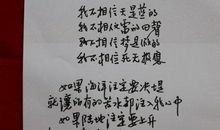 我不相信天是蓝的
我不相信雷的回声
我不相信梦是假的
我不相信死无报应
如果海洋注定要决堤
就让所有的苦水都注入我心中
如果陆地注定要上升